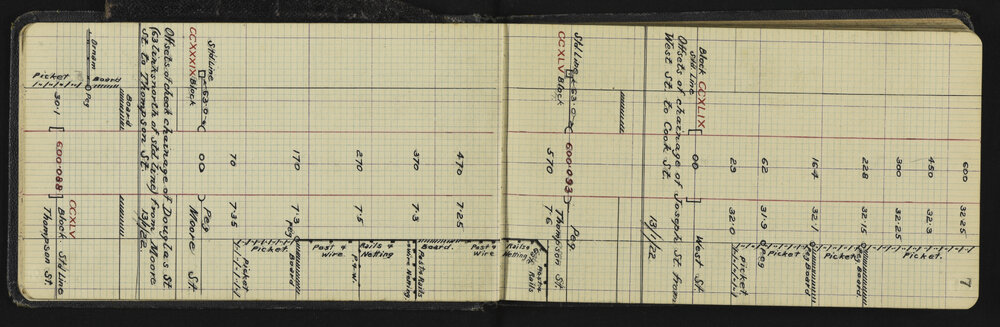 7
600 32·25
450 32·3
300 32·25
228 32·15
164 32·1
62 31·9
23 32·0
00 West St.
Picket.
Peg Board.
Picket
Peg Board
Peg
Picket
Block CCXLIX
Std Line
Offsets of chainage of Joseph St. from
West St. to Cook St. 13/1/22
Std Line 63·0 600·093 Peg
CCXLV Block Thompson St.
570 7·6
470 7·25
370 7·3
270 7·5
170 7·3 Peg
70 7·35
00 Peg
Moore St.
Post & Rails
Rails & Netting
Post & Wire
Board.
Posts Rails
Wire Netting.
Rails & Netting
P. & W.
Post & Wire
Board
Picket.
Std Line 63·0
CCXXXIX Block
Offsets of check chainage of Douglas St
(63 links north of std line) from Moore
St. to Thompson St. 13/1/22.
Board
Ornam Board
Peg
Picket
30·1 600·088 CCXLV
Block Std Line
Thompson St.